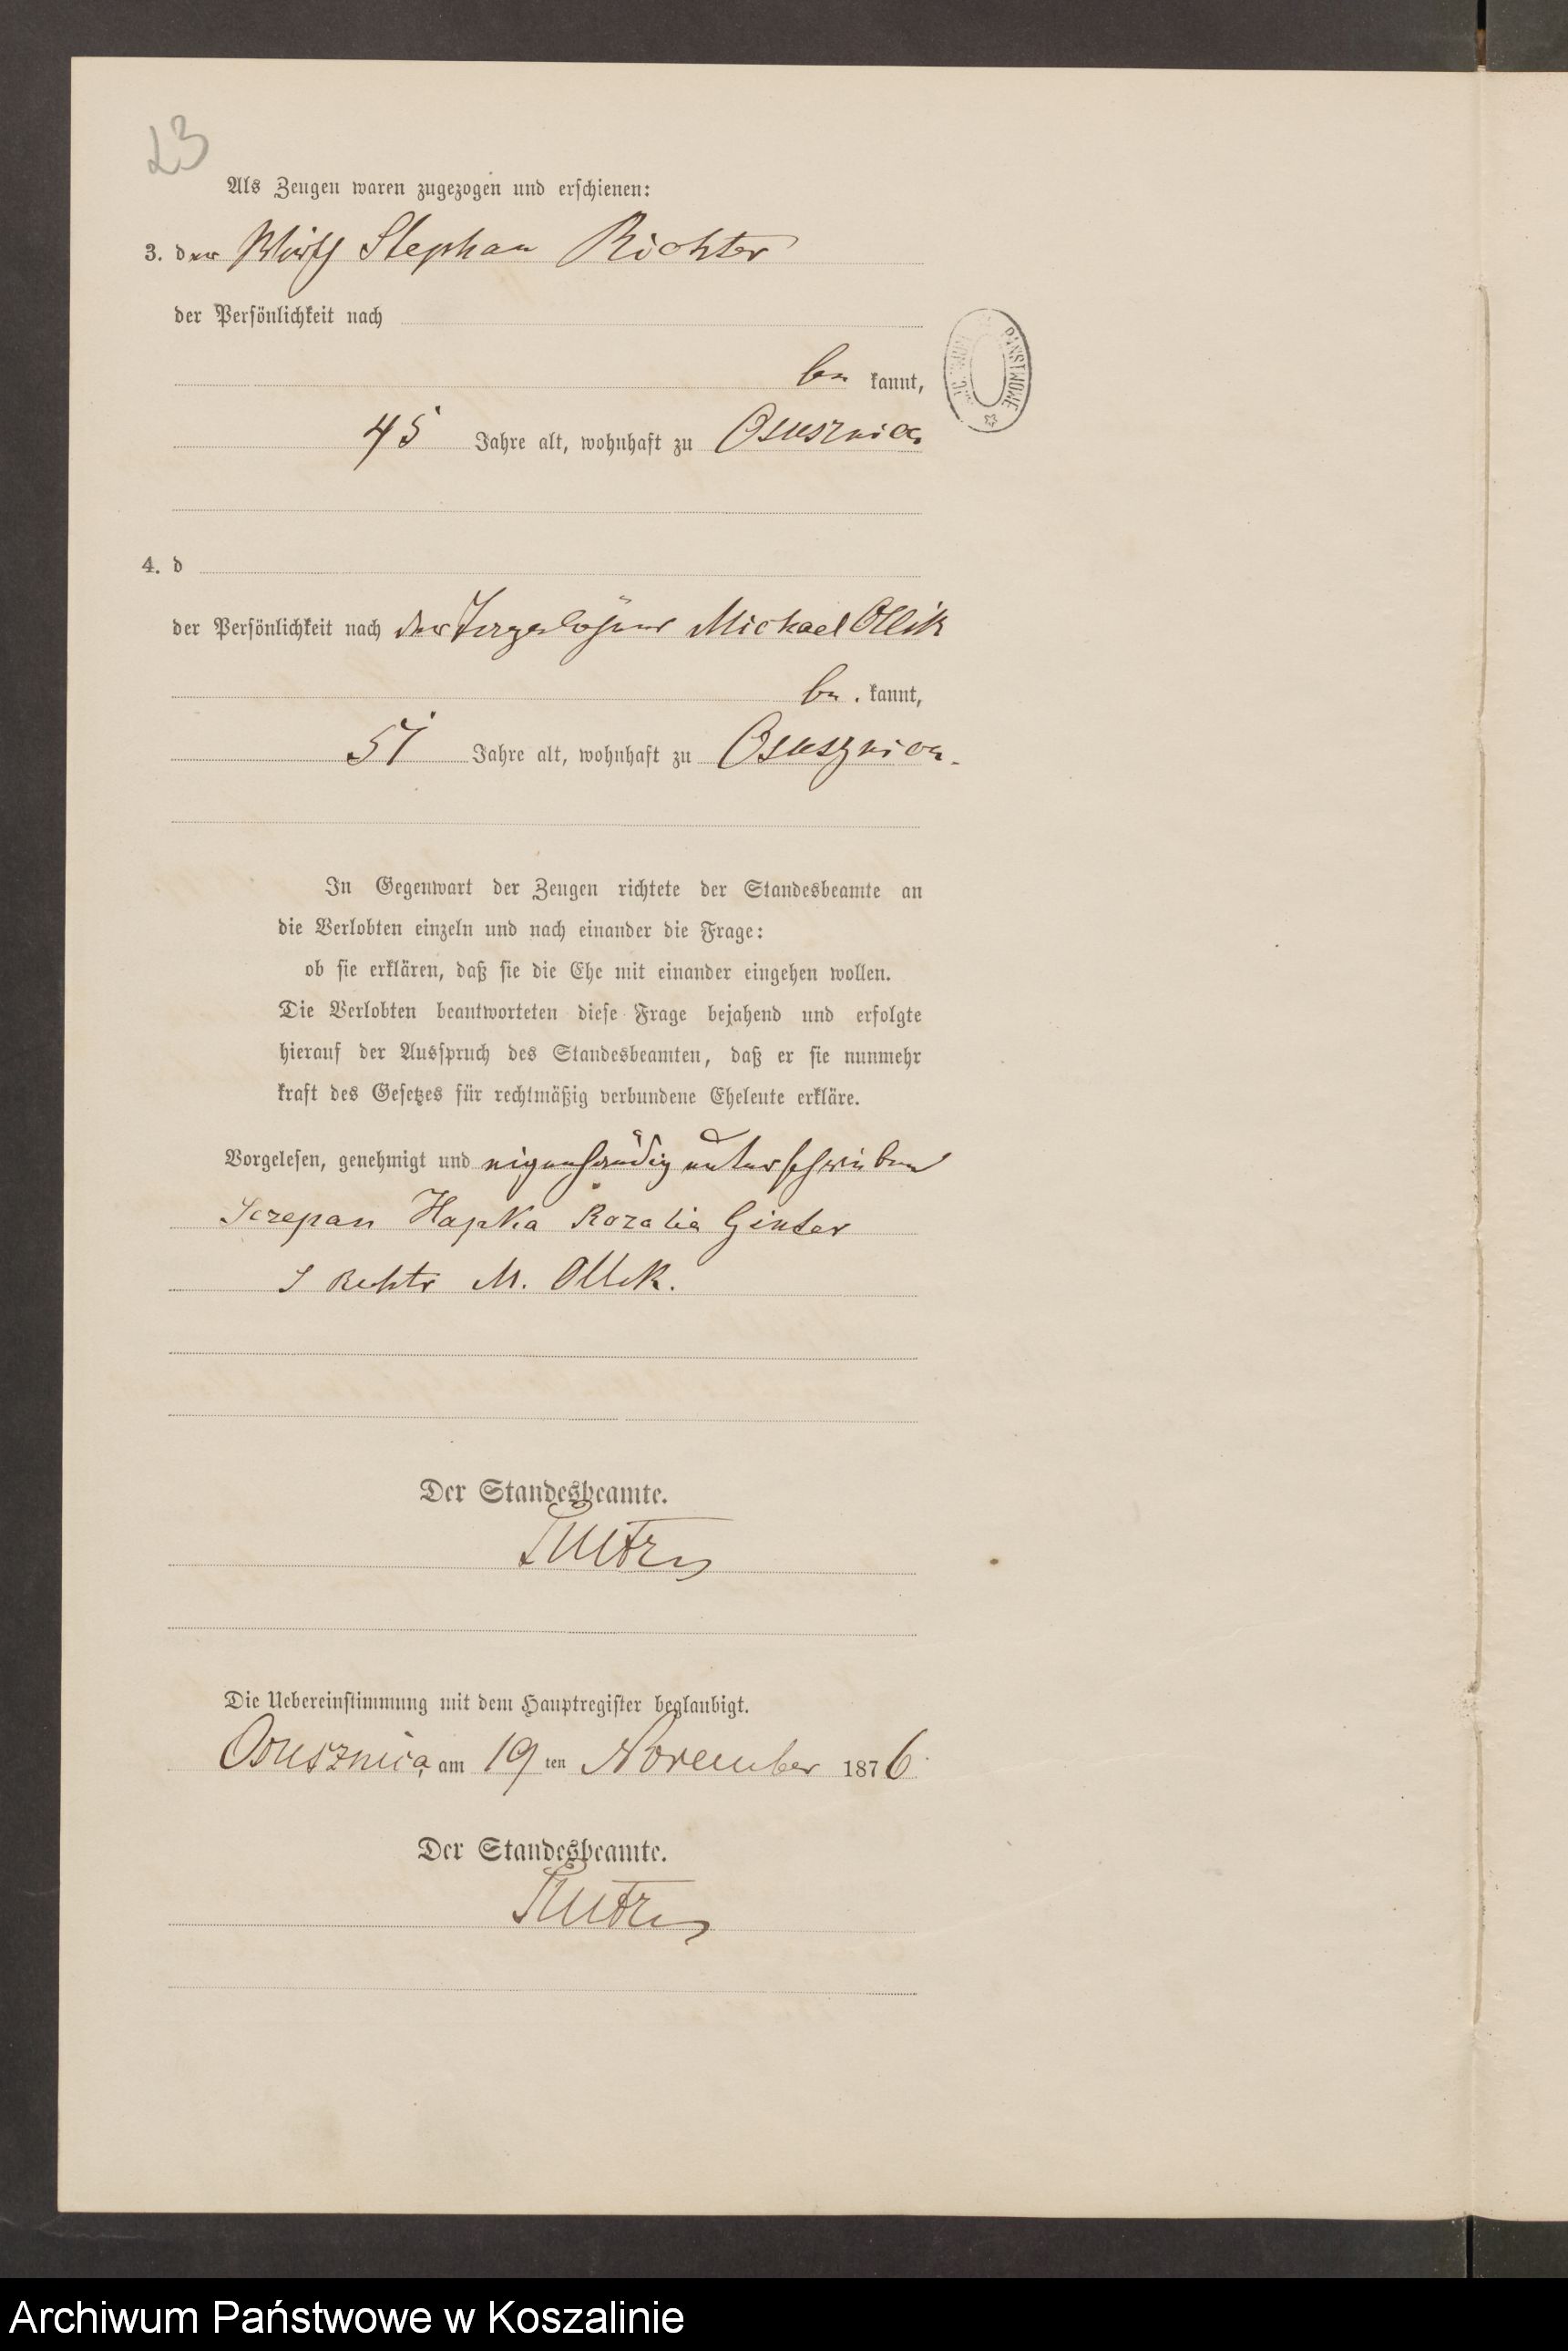 23
Als Zeugen waren zugezogen und erschienen:
3. der Wirth Stephan Richter
der Persönlichkeit nach
be kannt,
45 Jahre alt, wohnhaft zu Osusznica
4. d
der Persönlichkeit nach der Michael Ollik
be kannt,
51 Jahre alt, wohnhaft zu Osusznica.
PAŃSTWOWE
In Gegenwart der Zeugen richtete der Standesbeamte an
die Verlobten einzeln und nach einander die Frage:
ob sie erklären, daß sie die Ehe mit einander eingehen wollen.
Die Verlobten beantworteten diese Frage bejahend und erfolgte
hierauf der Ausspruch des Standesbeamten, daß er sie nunmehr
kraft des Gesetzes für rechtmäßig verbundene Eheleute erkläre.
Vorgelesen, genehmigt und eigenhändig unterschrieben
Sczepan Hapka Rozalia Ginter
S M. Ollik.
Der Standesbeamte.
Die Uebereinstimmung mit dem Hauptregister beglaubigt.
Osusznica, am 19 ten November 1876.
Der Standesbeamte.
Archiwum Państwowe w Koszalinie